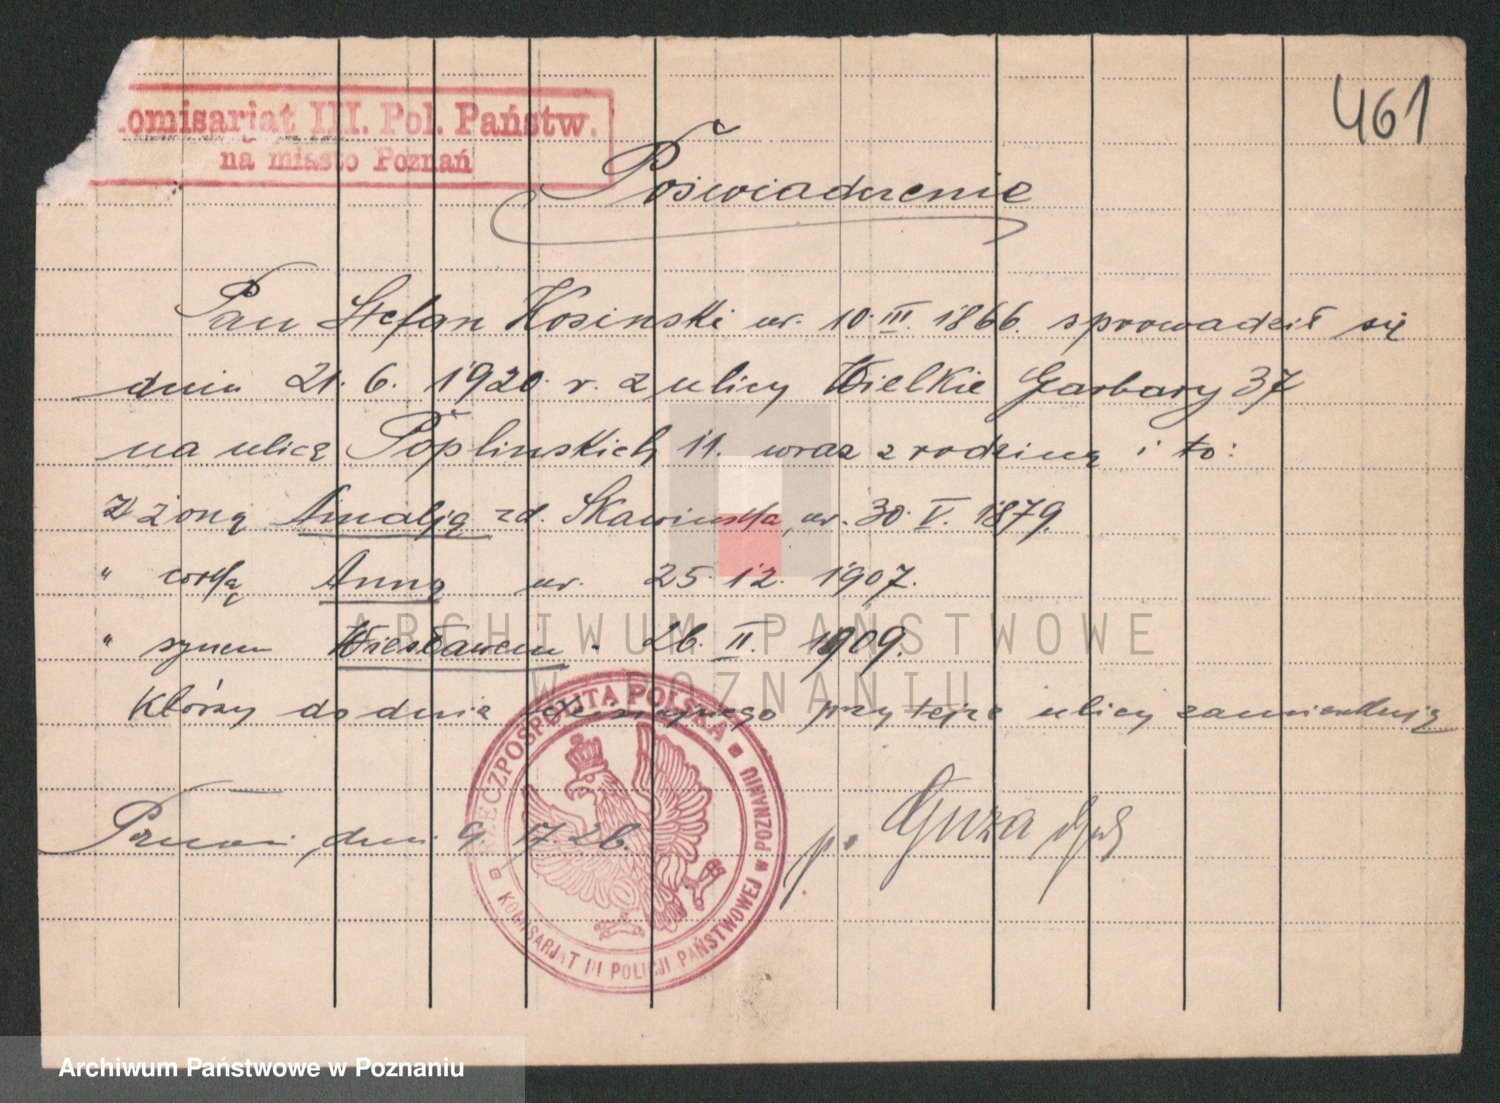 omisarjat III. Pol. Państw.
na miasto Poznań
461
Poświadczenie
Pan Stefan Kosinski ur. 10.III.1866. sprowadził się
dnia 21.6.1920 r. z ulicy Wielkie Garbary 37
na ulicę Poplinskich 11. wraz z rodziną i to:
Z żoną Amalją zd. Skawinska, ur. 30.V.1879
" corką Anną ur. 25.12.1907.
" synem Wiesławem - 26.II.1909.
Którzy do dnia przy tejże ulicy zamieszkują
Poznań, dnia 9. 17.26.
p. Guza
RZECZPOSPOLITA POLSKA
KOMISARJAT III POLICJI PAŃSTWOWEJ w POZNANIU
ARCHIWUM PAŃSTWOWE
W POZNANIU
Archiwum Państwowe w Poznaniu